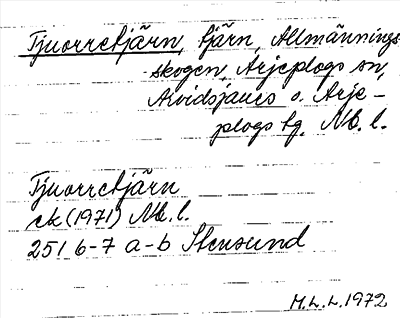 Tjuorretjärn, tjärn, Allmännings-
skogen, Arjeplogs sn,
Arvidsjaurs o. Arje-
plogs tg. Nb. l.
Tjuorretjärn
ek (1971) Nb. l.
251 6-7 a-b Stensund
M.L.L. 1972